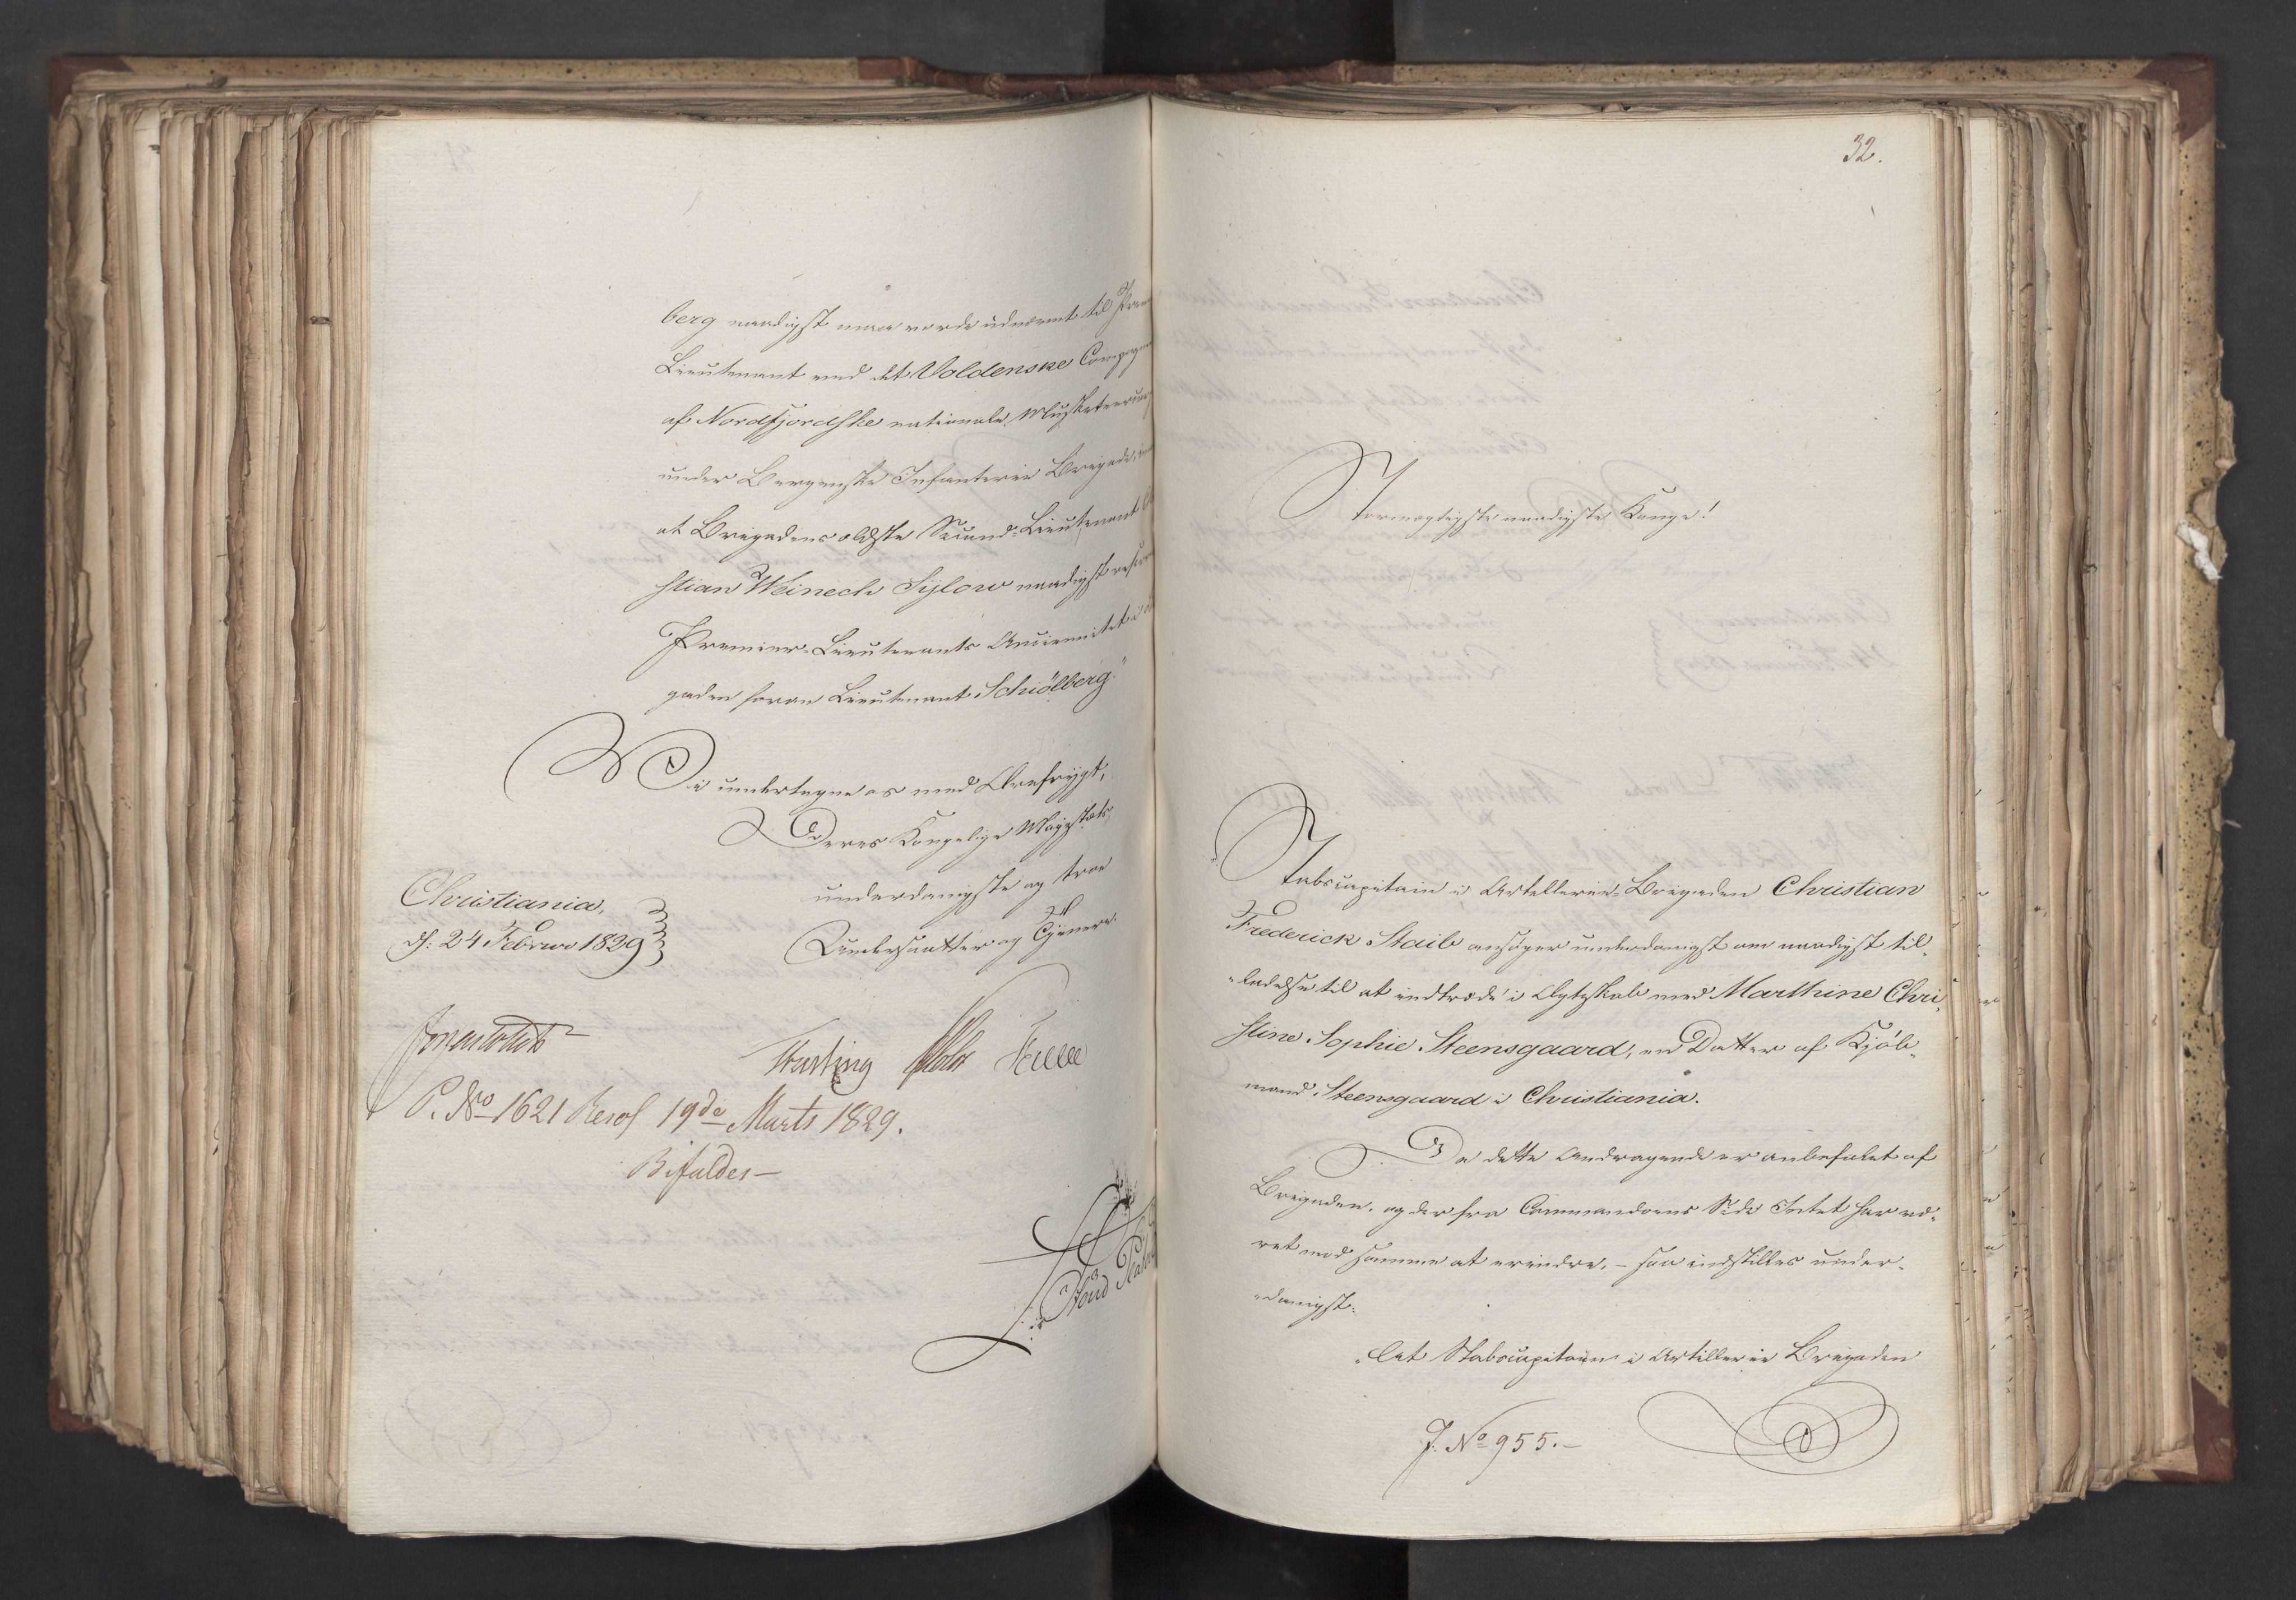 berg naadigst maa vorde udnævnt til Prem
Lieutenant ved det Voldenske Compagni
af Nordfjordske nationale Musketeercorps
under Bergenske Infanterie Brigade,
at Brigadens ældste Second-Lieutenant
stian Weinech Sylow naadigst
Premier-Lieutenants Anciennitet i
gaden foran Lieutenant Schiølberg."
Vi undertegne os med Ærefrygt,
Deres Kongelige Majestæts
underdanigste og troe
Undersaatter og Tjenere
Christiania,
d: 24 Februar 1829
Hasting Fasting
P. No 1621 Resol 19de Marts 1829.
Bifaldes —
32.
Stormægtigste naadigste Konge!
Stabscapitain i Artillerie-Brigaden Christian
Frederick Staib ansøger underdanigst om naadigst til-
"ladelse til at indtræde i Ægteskab med Marthine Chri-
stine Sophie Steensgaard, en Datter af Kjøb-
mand Steensgaard i Christiania.
Da dette Andragende er anbefalet af
Brigaden, og der fra Commandoens Side Intet har væ-
ret mod samme at erindre, – saa indstilles under-
"danigst:
"At Stabscapitain i Artillerie Brigaden
J. No 955.–